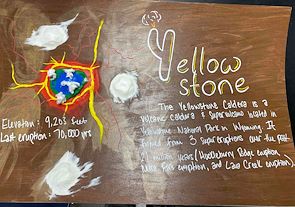 Yellow
stone
Elevation: 9,203 feet
Last eruption: 70,000 yrs
The Yellowstone Caldera is a
Volcanic caldera & Supervolcano located in
Yellowstone National Park in Wyoming. It
formed from 3 super eruptions over the past
2.1 million years (Huckleberry Ridge eruption,
Mesa Falls eruption, and Lava Creek eruption).